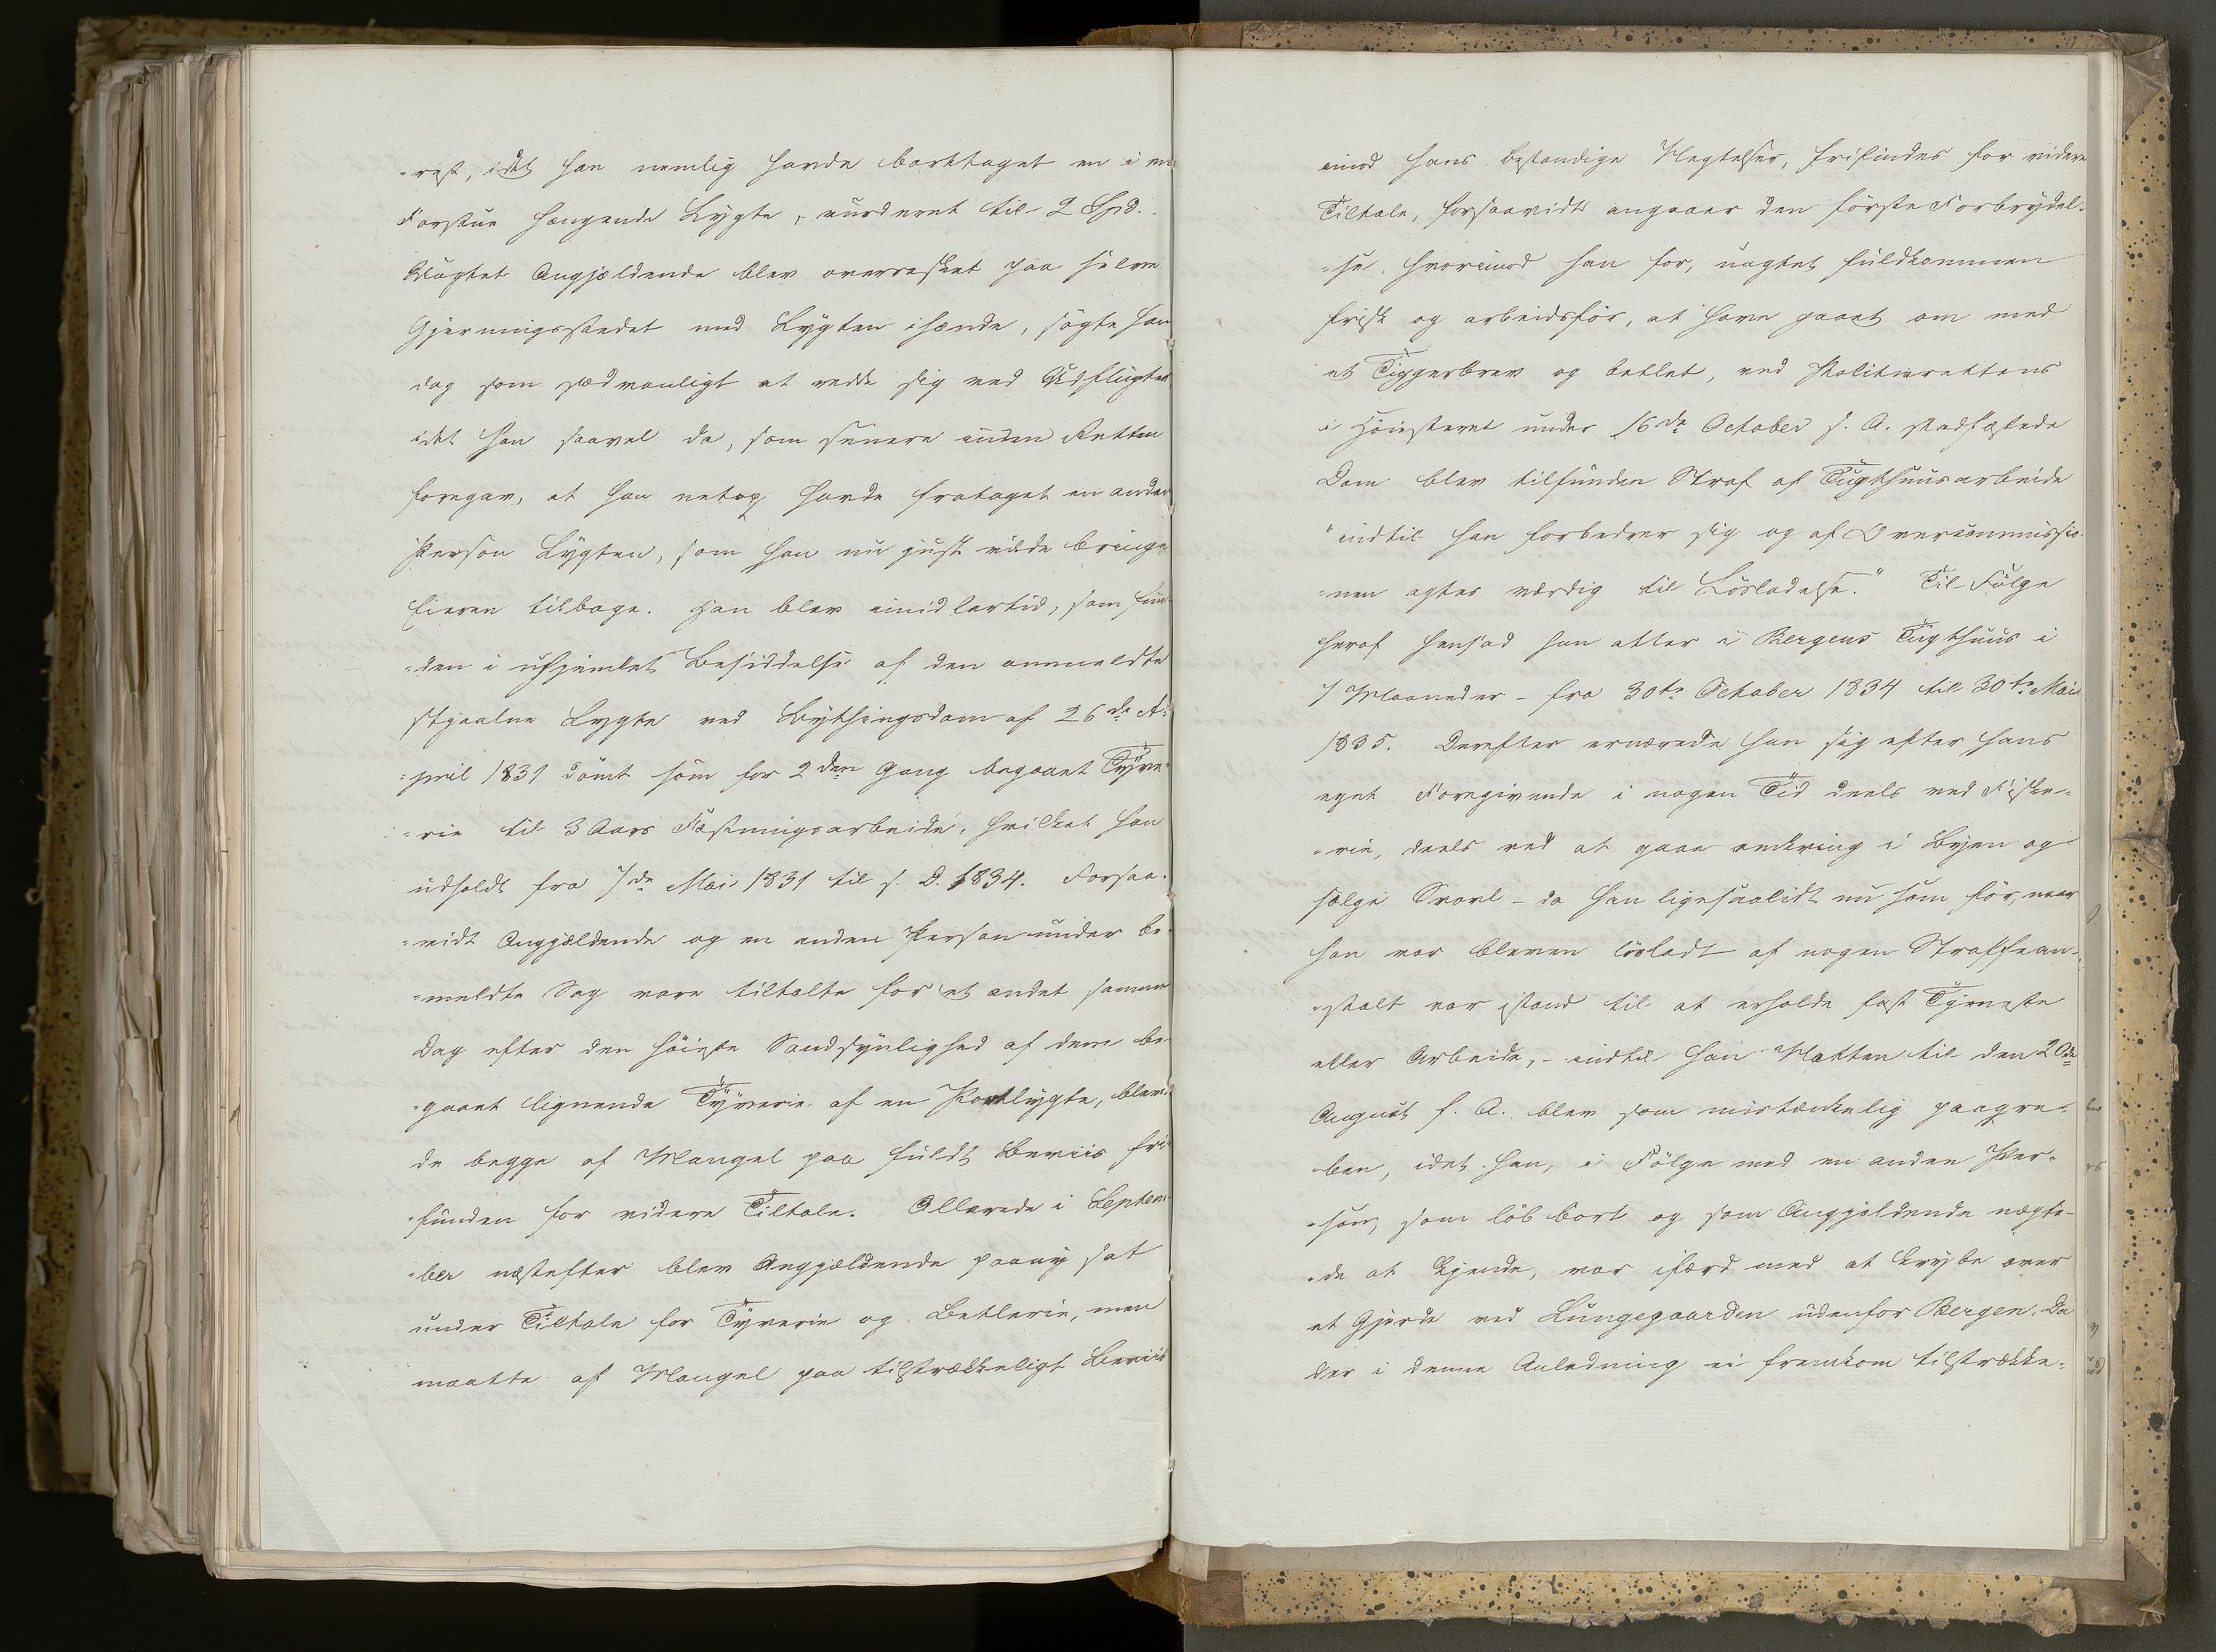 -rest, idet han nemlig havde borttaget en i en
Forstue hængende Lygte, vurderet til 2 Spd.
Uagtet Angjældende blev overrasket paa selve
Gjerningsstedet med Lygten ihænde, søgte han
dog som sædvanligt at redde sig ved Udflugter
idet han saavel da, som senere inden Retten
foregav, at han netop havde frataget en anden
Person Lygten, som han nu just vilde bringe
Eieren tilbage. Han blev imidlertid, som fun-
-den i uhjemlet Besiddelse af den anmeldte
stjaalne Lygte ved Bythingsdom af 26de A-
-pril 1831 dömt som for 2den Gang begaaet Tyve-
-rie til 3 Aars Fæstningsarbeide, hvilket han
udholdt fra 7de Mai 1831 til s. D. 1834. Forsaa-
-vidt Angjældende og en anden Person under be-
-meldte Sag vare tiltalte for et andet samme
Dag efter den höieste Sandsynlighed af dem be-
-gaaet lignende Tyverie af en Portlygte, blev
de begge af Mangel paa fuldt Beviis fri-
-funden for videre Tiltale. Allerede i Septem-
-ber næstefter blev Angjældende paany sat
under Tiltale for Tyverie og Betlerie, men
maatte af Mangel paa tilstrækkeligt Beviis
imod hans bestandige Negtelser, frifindes for videre
Tiltale, forsaavidt angaaer den förste Forbrydel-
-se, hvorimod han for, uagtet fuldkommen
frisk og arbeidsför, at have gaaet om med
et Tiggerbrev og betlet, ved Politierettens
i Höiesteret under 16de October s. A. stadfæstede
Dom blev tilfunden Straf af Tugthuusarbeide
"indtil han forbedrer sig og af Overcommissio-
-nen agtes værdig til Lösladelse." Til Fölge
heraf hensad han atter i Bergens Tugthuus i
7 Maaneder - fra 30te October 1834 til 30te Mai
1835. Derefter ernærede han sig efter hans
eget Foregivende i nogen Tid deels ved Fiske-
-rie, deels ved at gaae omkring i Byen og
sælge Svovl - da han ligesaalidt nu som för, naar
han var bleven lösladt af nogen Straffean-
-stalt var istand til at erholde fast Tjeneste
eller Arbeide, - indtil han Natten til den 20de
August s. A. blev som mistænkelig paagre-
-ben, idet han, i Fölge med en anden Per-
-son, som löb bort og som Angjældende nægte-
-de at kjende, var ifærd med at krybe over
et Gjerde ved Lungegaarden udenfor Bergen. Da
der i denne Anledning ei fremkom tilstrække-